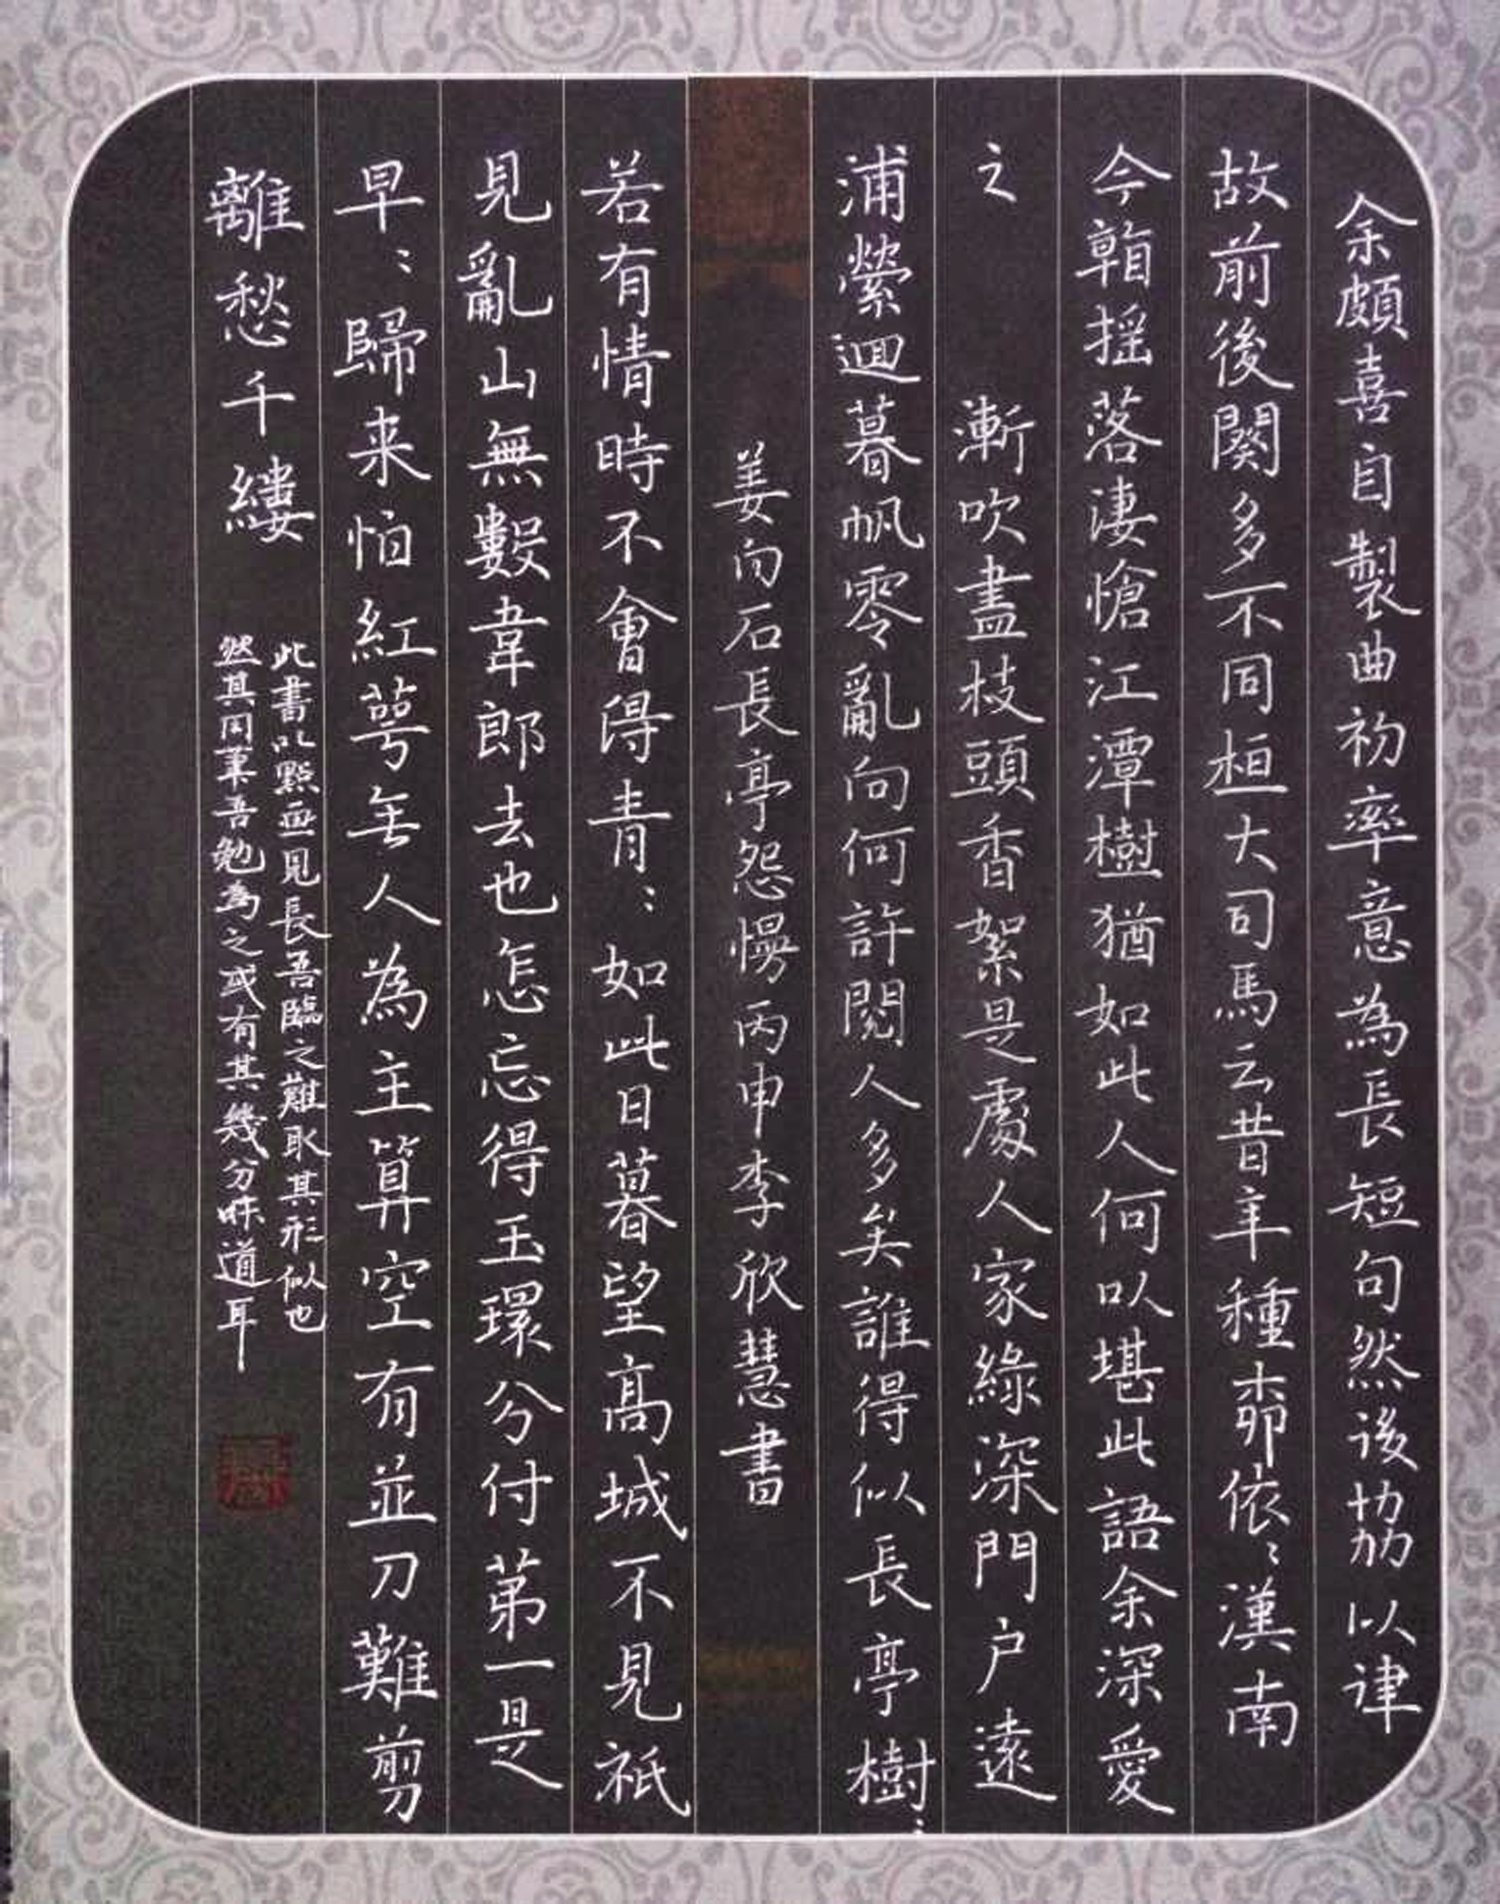 余頗喜自製曲初率意為長短句然後協以律
故前後闋多不同桓大司馬云昔年種桺依〻漢南
今㫋搖落淒愴江潭樹猶如此人何以堪此語余深愛
之
漸吹盡枝頭香絮是處人家綠深門户遠
浦縈迴暮帆零亂向何許閱人多矣誰得似長亭樹〻
姜向石長亭怨慢丙申李欣慧書
若有情時不會得青〻如此日暮望高城不見祇
見亂山無數韋郎去也怎忘得玉環分付第一是
早〻歸来怕紅萼无人為主算空有並刀難剪
離愁千縷
此書以點畫見長吾臨之難取其形似也
然其用筆吾勉為之或有其幾分味道耳